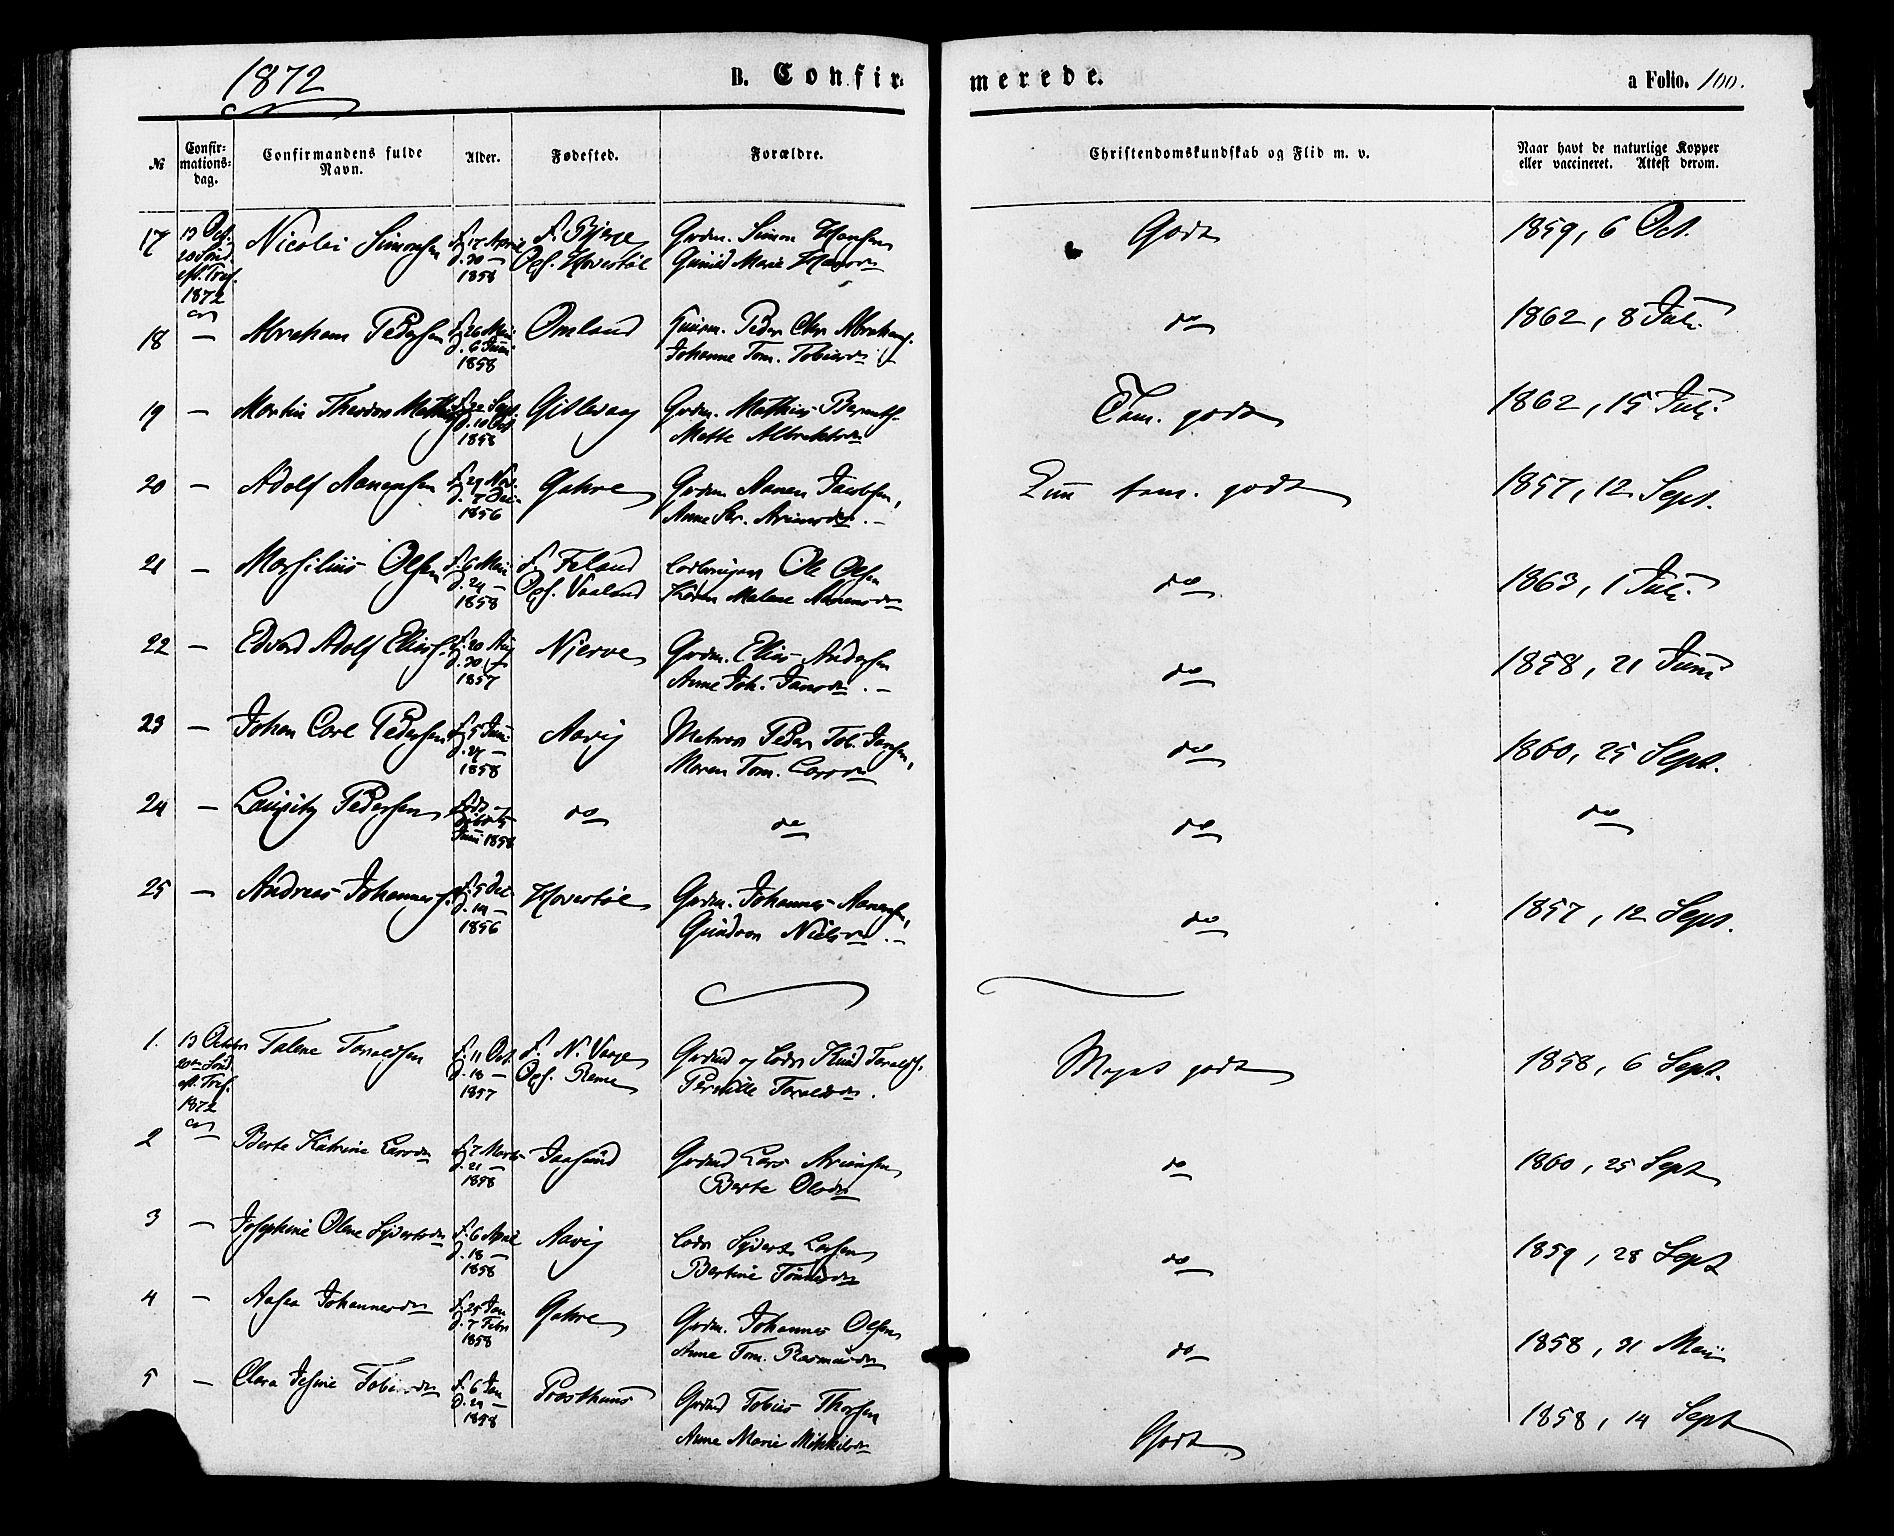 1872
B. Confirmerede.
a Folio. 100.
№ Confirmations-dag. Confirmandens fulde Navn. Alder. Fødested. Forældre. Christendomskundskab og Flid m. v. Naar havt de naturlige Kopper eller vaccineret. Attest derom.
17 13 Oct. 20 Sønd. eft. Tref. 1872 Nicolai Simonsen f. 17 April d. 30 — 1858 f. Bjerge Opf. Hovestøl Grdm. Simon Hansen Gunild Marie Godt 1859, 6 Oct.
18 — Abraham Pedersen f. 26 Mai d. 6 Juni 1858 Omland Peder Chr. Abrahams. Johanne Tom. Tobiasd. do 1862, 8 Juli
19 — Martin Theodor f. 22 Sept. d. 10 Oct. 1858 Gitlevaag Grdm. Mathias Berents. Mette Albrektsd. Tem. godt 1862, 15 Juli
20 — Adolf Aanensen f. 29 Nov. d. 7 Dec. 1856 Gahre Grdm. Aanen Jacobsen, Anne Kr. — tem. godt 1857, 12 Sept.
21 — Marsilius Olsen f. 6 Mai d. 24 — 1858 f. Feland Opf. Vaaland Ole Olsen Karen Malene Aanensd. do 1863, 1 Juli
22 — Edvard Adolf Elias. f. 20 Aug d. 30 — 1857 Njerve Grdm. Elias Andersen Anne Joh. Jansd. — do 1858, 21 Juni
23 — Johan Carl Pedersen f. 5 Juni d. 27 — 1858 Aavig Matros Peder Tob. Jansen, Maren Tom. Larsd. do 1860, 25 Sept.
24 — Lauritz Pedersen Juni 1858 do do do do
25 — Andreas Johanness. f. 5 Dec. d. 14 — 1856 Hovestøl Grdm. Johannes Aanens., Gundvor Nielsd. — do 1857, 12 Sept.
1. 13 October 20de Sønd. eft. Tref. 1872 Talene Toraldsen f. 11 Oct. d. 18 — 1857 f. N. Vaage Opf. Reme Grdmd og Lods Knud Toralds. Pernille Toraldsd. Meget godt 1858, 6 Sept.
2 — Berte Katrine Larsd. f. 7 Marts d. 21 — 1858 Jaasund Grdmd Lars Berte Olsd. do 1860, 25 Sept
3 — Josephine Olene Syvertsd. f. 6 April d. 18 — 1858 Aavig Lods Syvert Larsen Bertine Tønnesd. do 1859, 28 Sept
4 — Aasa Johannesd. f. 25 Jan d. 7 Febr 1858 Gahre Grdm. Johannes Olsen Anne Tom. Rasmusd. do 1858, 31 Mai
5 — Clara Jesine Tobiasd. f. 6 Jan d. 24 — 1858 Prosthuus Grdmd Tobias Thorsen Anne Marie Mikkelsd. Godt 1858, 14 Sept